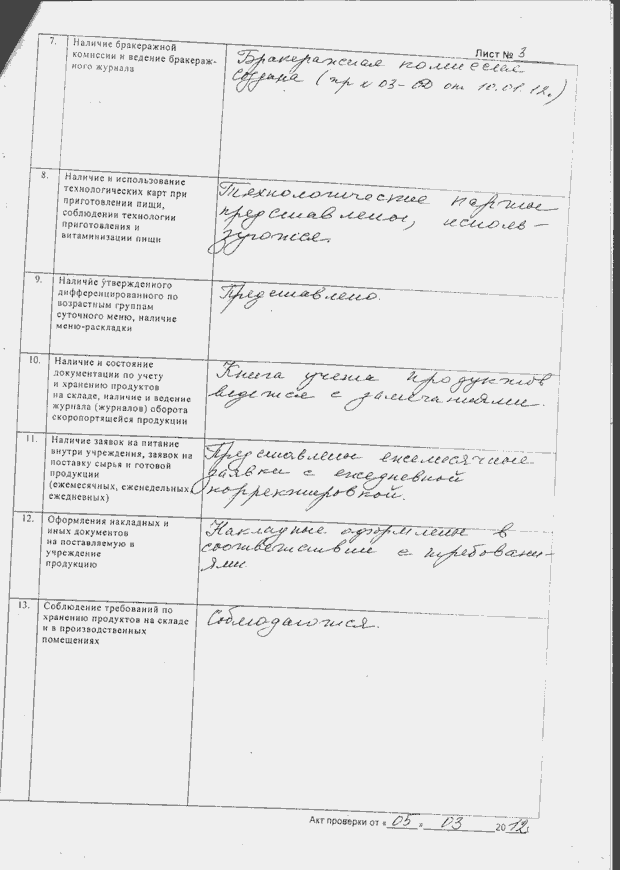 Лист № 3
7. Наличие бракеражной
комиссии и ведение бракераж-
ного журнала
Бракеражная комиссия
создана (пр № 03-ОД от 10.01.12.)
8. Наличие и использование
технологических карт при
приготовлении пищи,
соблюдения технологии
приготовления и
витаминизации пищи
Технологические карты
представлены, исполь-
зуются.
9. Наличие утвержденного
дифференцированного по
возрастным группам
суточного меню, наличие
меню-раскладки
Представлено.
10. Наличие и состояние
документации по учету
и хранению продуктов
на складе, наличие и ведение
журнала (журналов) оборота
скоропортящейся продукции
Книга учета продуктов
ведется с замечаниями.
11. Наличие заявок на питание
внутри учреждения, заявок на
поставку сырья и готовой
продукции
(ежемесячных, еженедельных,
ежедневных)
Представлены ежемесячные
заявки с ежедневной
корректировкой.
12. Оформления накладных и
иных документов
на поставляемую в
учреждение
продукцию
Накладные оформлены в
соответствии с требовани-
ями
13. Соблюдение требований по
хранению продуктов на складе
и в производственных
помещениях
Соблюдаются.
Акт проверки от « 05 » 03 2012г.